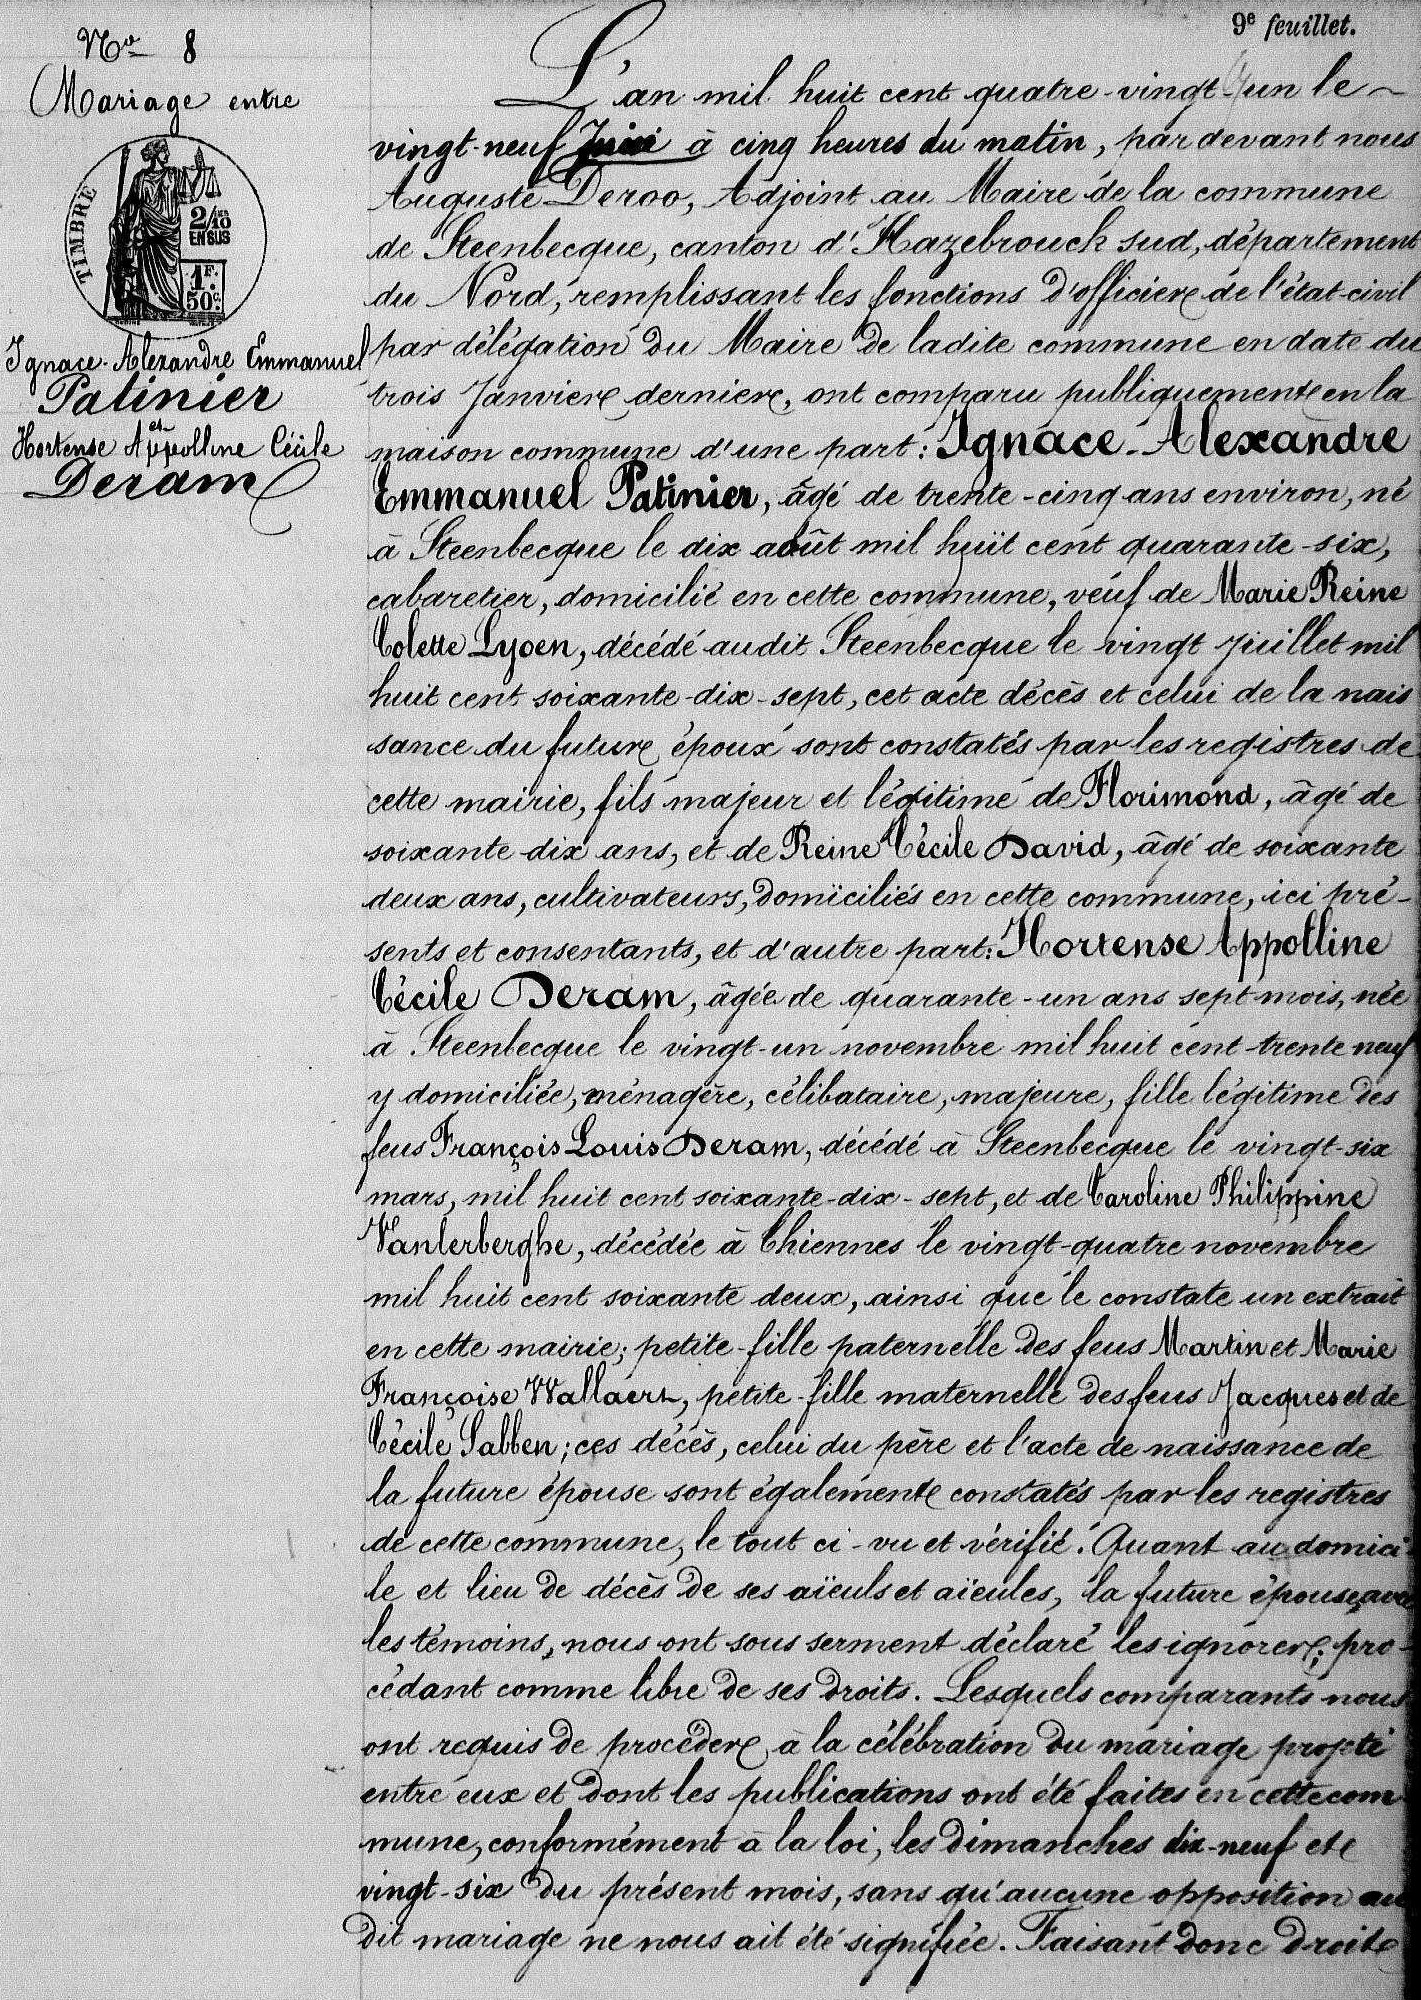 9e feuillet.
No 8
Mariage entre
TIMBRE
2/10
EN SUS
1F.
50c.
Ignace-Alexandre Emmanuel
Patinier
et
Hortense Appolline Cécile
Deram
L'an mil huit cent quatre-vingt-un le
vingt-neuf Juin à cinq heures du matin, par devant nous
Auguste Deroo, Adjoint au Maire de la commune
de Steenbecque, canton d'Hazebrouck sud, département
du Nord, remplissant les fonctions d'officier de l'état-civil
par délégation du Maire de ladite commune en date du
trois Janvier dernier, ont comparu publiquement en la
maison commune d'une part: Ignace-Alexandre
Emmanuel Patinier, âgé de trente-cinq ans environ, né
à Steenbecque le dix août mil huit cent quarante-six,
cabaretier, domicilié en cette commune, veuf de Marie Reine
Colette Lyoen, décédé audit Steenbecque le vingt Juillet mil
huit cent soixante-dix-sept, cet acte décès et celui de la nais
sance du future époux sont constatés par les registres de
cette mairie, fils majeur et légitime de Florimond, âgé de
soixante-dix ans, et de Reine Cécile David, âgé de soixante
deux ans, cultivateurs, domiciliés en cette commune, ici pré-
sents et consentants, et d'autre part: Hortense Appolline
Cécile Deram, âgée de quarante-un ans sept mois, née
à Steenbecque le vingt-un novembre mil huit cent trente neuf
y domiciliée, ménagère, célibataire, majeure, fille légitime des
feus François Louis Deram, décédé à Steenbecque le vingt-six
mars, mil huit cent soixante-dix-sept, et de Caroline Philippine
Vanlerberghe, décédée à Thiennes le vingt-quatre novembre
mil huit cent soixante deux, ainsi que le constate un extrait
en cette mairie; petite-fille paternelle des feus Martin et Marie
Françoise Wallaert, petite-fille maternelle des feus Jacques et de
Cécile Sabben; ces décès, celui du père et l'acte de naissance de
la future épouse sont également constatés par les registres
de cette commune, le tout ci-vu et vérifié. Quant au domici
le et lieu de décès de ses aïeuls et aïeules, la future épouse, avec
les témoins, nous ont sous serment déclaré les ignorer; pro-
cédant comme libre de ses droits. Lesquels comparants nous
ont requis de procéder à la célébration du mariage projeté
entre eux et dont les publications ont été faites en cette com
mune, conformément à la loi, les dimanches dix-neuf et
vingt-six du présent mois, sans qu'aucune opposition au
dit mariage ne nous ait été signifiée. Faisant donc droit